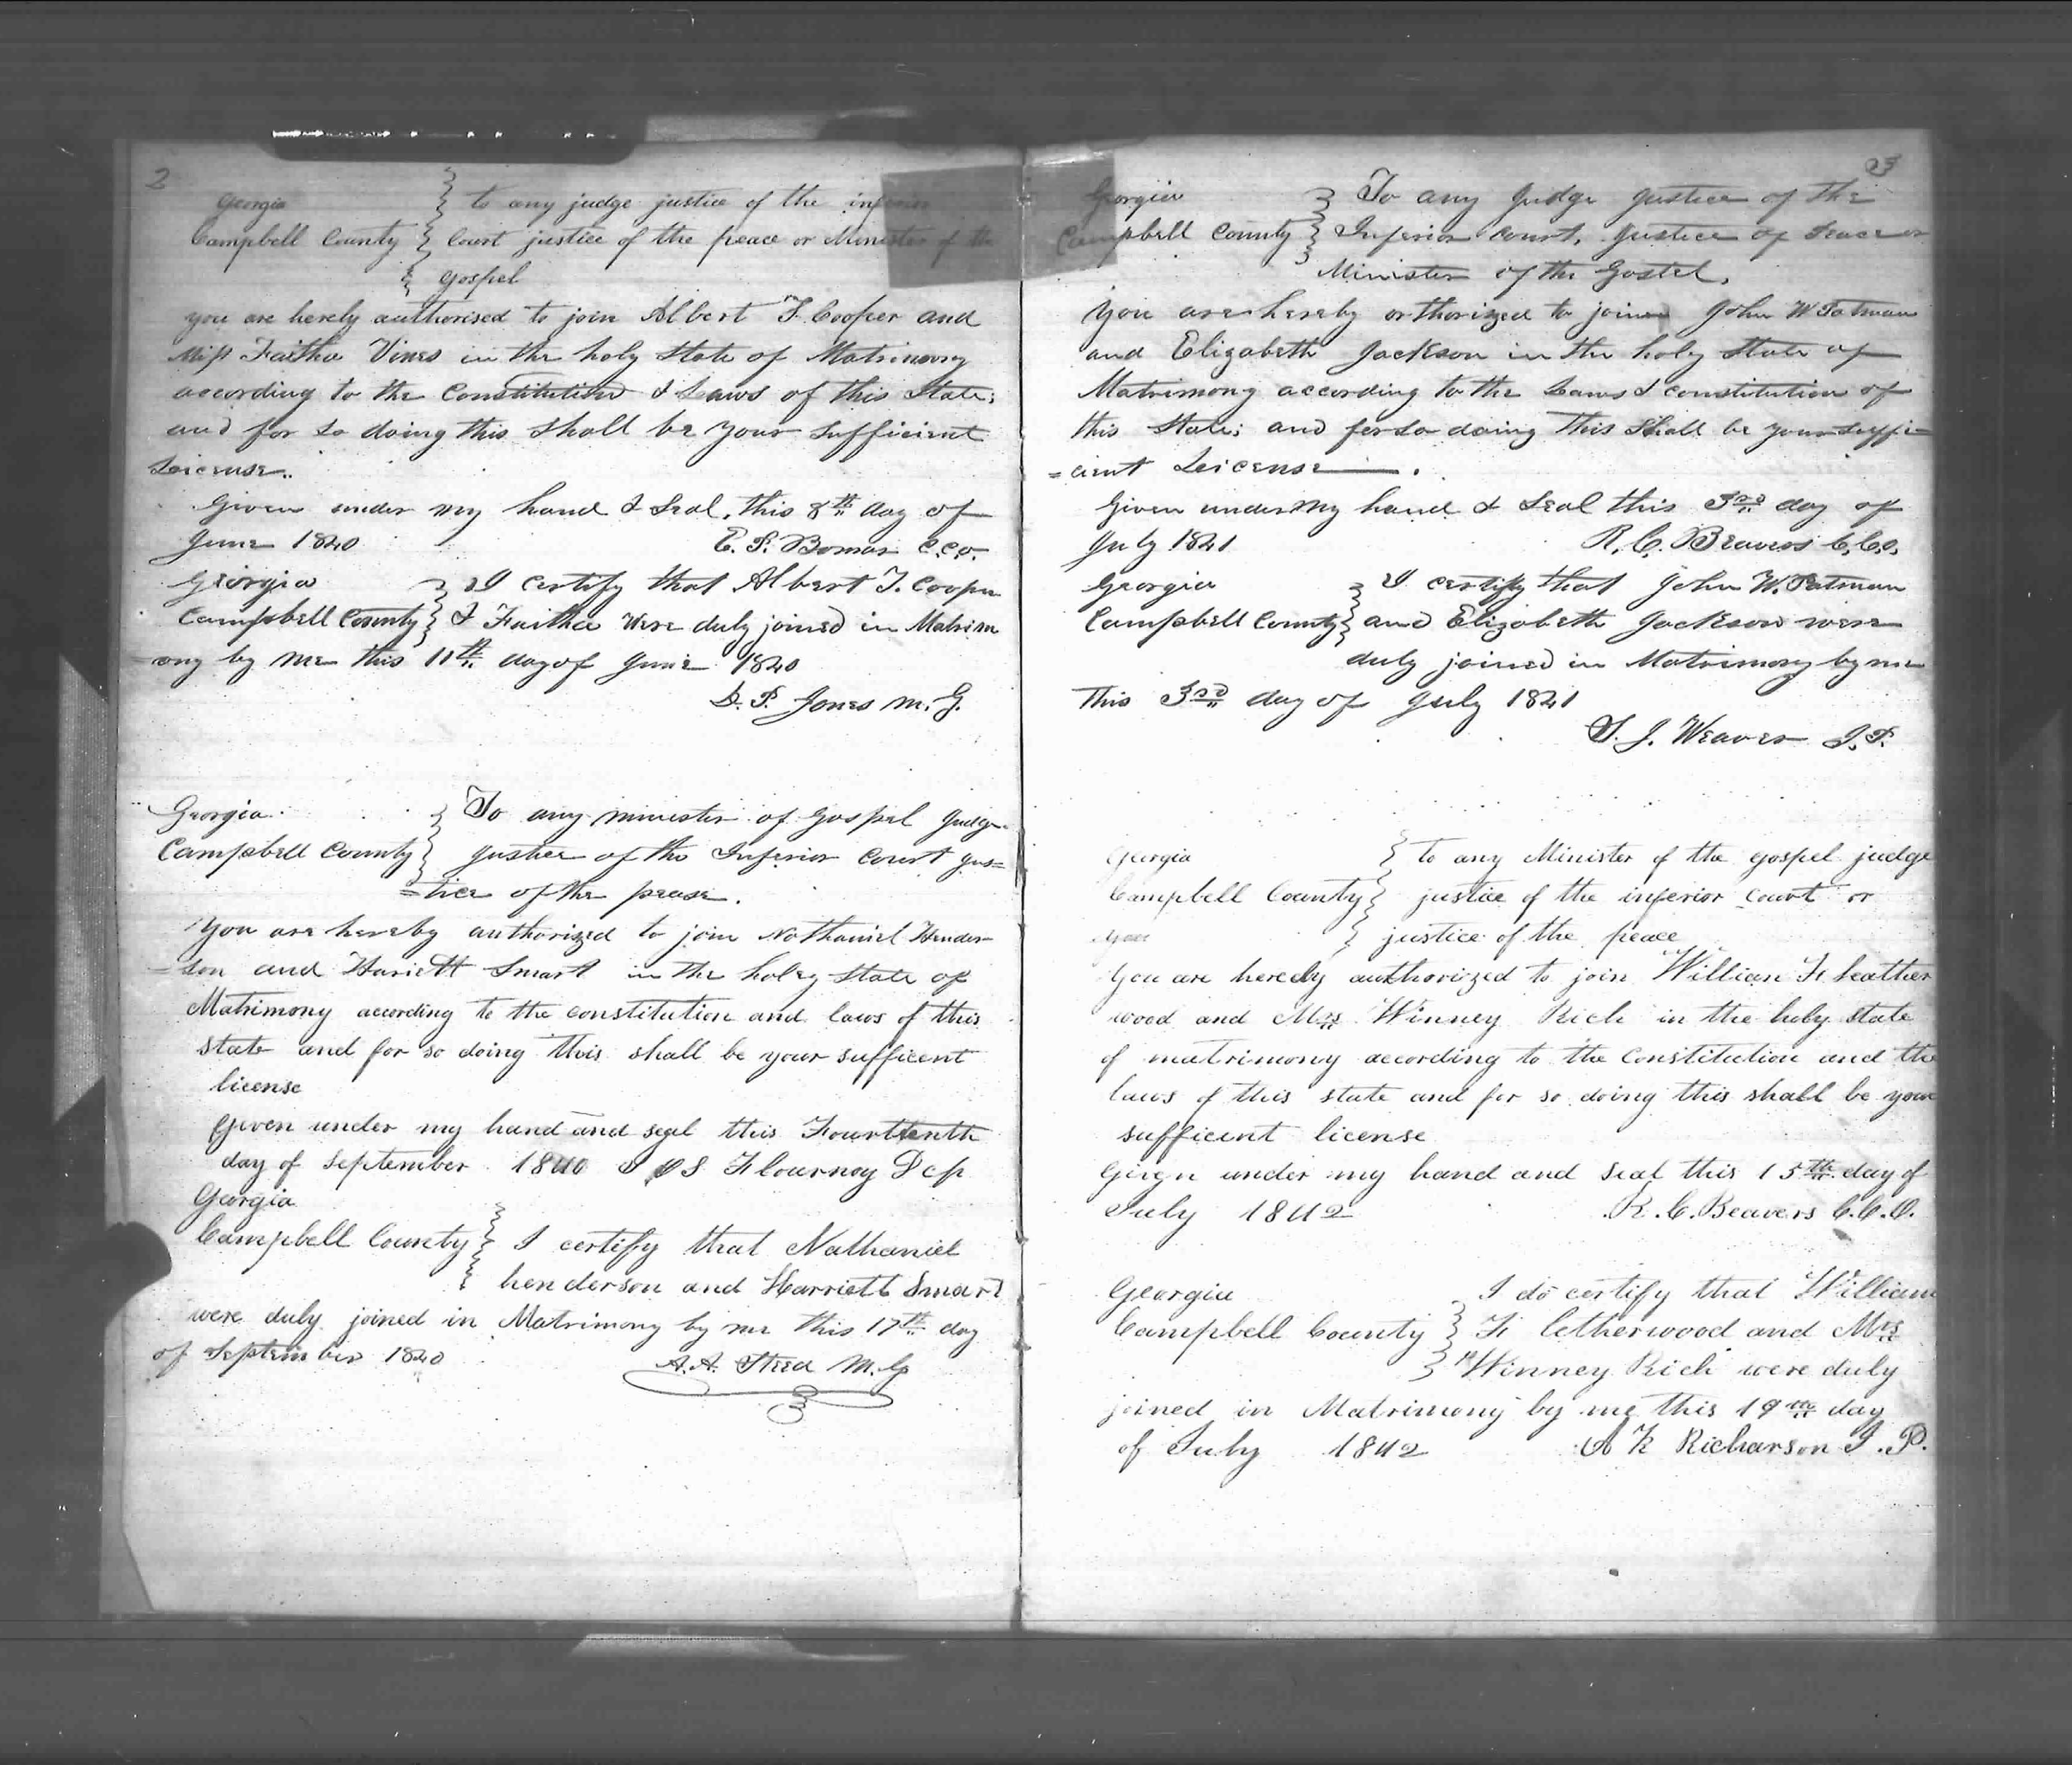 2
Georgia } to any judge justice of the inferior
Campbell County } Court justice of the peace or Minister of the
} gospel
you are herely authorised to join Albert T. Cooper and
Miss Faitha Vines in the holy state of Matrimony
according to the Constitution & Laws of this State;
and for so doing this shall be your sufficient
License.
Given under my hand & Seal, this 8th day of
June 1840 E. P. Bomar C.C.O.
Georgia } I certify that Albert T. Cooper
Campbell County } & Faitha were duly joined in Matrim
ony by me this 11th day of June 1840
D. P. Jones M. G.
Georgia } To any minister of Gospel Judge
Campbell County } Justice of the Inferior Court Jus=
=tice of the pease.
You are hereby authorized to join Nathaniel Hender
=son and Hariett Smart in the holey state of
Matrimony according to the constitution and laws of this
state and for so doing this shall be your sufficent
license
Given under my hand and seal this Fourtteenth
day of September 1840 S Flournoy Dcp
Georgia
Campbell County } I certify that Nathaniel
} henderson and Harriett Smart
were duly joined in Matrimony by me this 17th day
of September 1840 A. A. Steed M. G
3
Georgia } To any Judge Justice of the
Campbell County } Inferior Court, Justice of Peace or
Minister of the Gospel.
You are hereby orthorized to join John W Patman
and Elizabeth Jackson in the holy State of
Matrimony according to the Laws & constitution of
this State; and for so doing this Shall be your suffi=
=cient License.
Given under My hand & Seal this 3rd day of
July 1841 R. C. Beavers C.C.O.
Georgia } I certify that John W. Patman
Campbell County } and Elizabeth Jackson were
duly joined in Matrimony by me
this 3rd day of July 1841
S. J. Weaver J. P.
Georgia } to any Minister of the gospel judge
Campbell County } justice of the inferior court or
you } justice of the peace
You are herely authorized to join William F. Leather
wood and Mrs Winney Rich in the holy state
of matrimony according to the Constitution and the
laws of this state and for so doing this shall be your
sufficent license
Given under my hand and seal this 15th day of
July 1842 R. C. Beavers C.C.O.
Georgia I do certify that William
Campbell County } F. Letherwood and Mrs
} Winney Rich were duly
joined in Matrimony by me this 19th day
of July 1842 A K Richarson J. P.